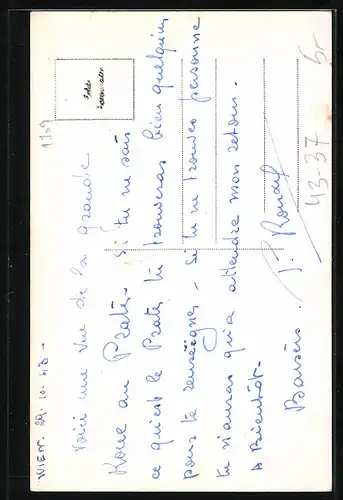 WIEN. 29-10-43 -
Voici une vue de la grande
Roue au Prater. Si tu ne sais
ce qu'est le Prater tu trouveras bien quelqu'un
pour te renseigner - Si tu ne trouves personne
tu n'auras qu'a attendre mon retour.
A Bientôt.
Baisers.
1109
43-37
5r